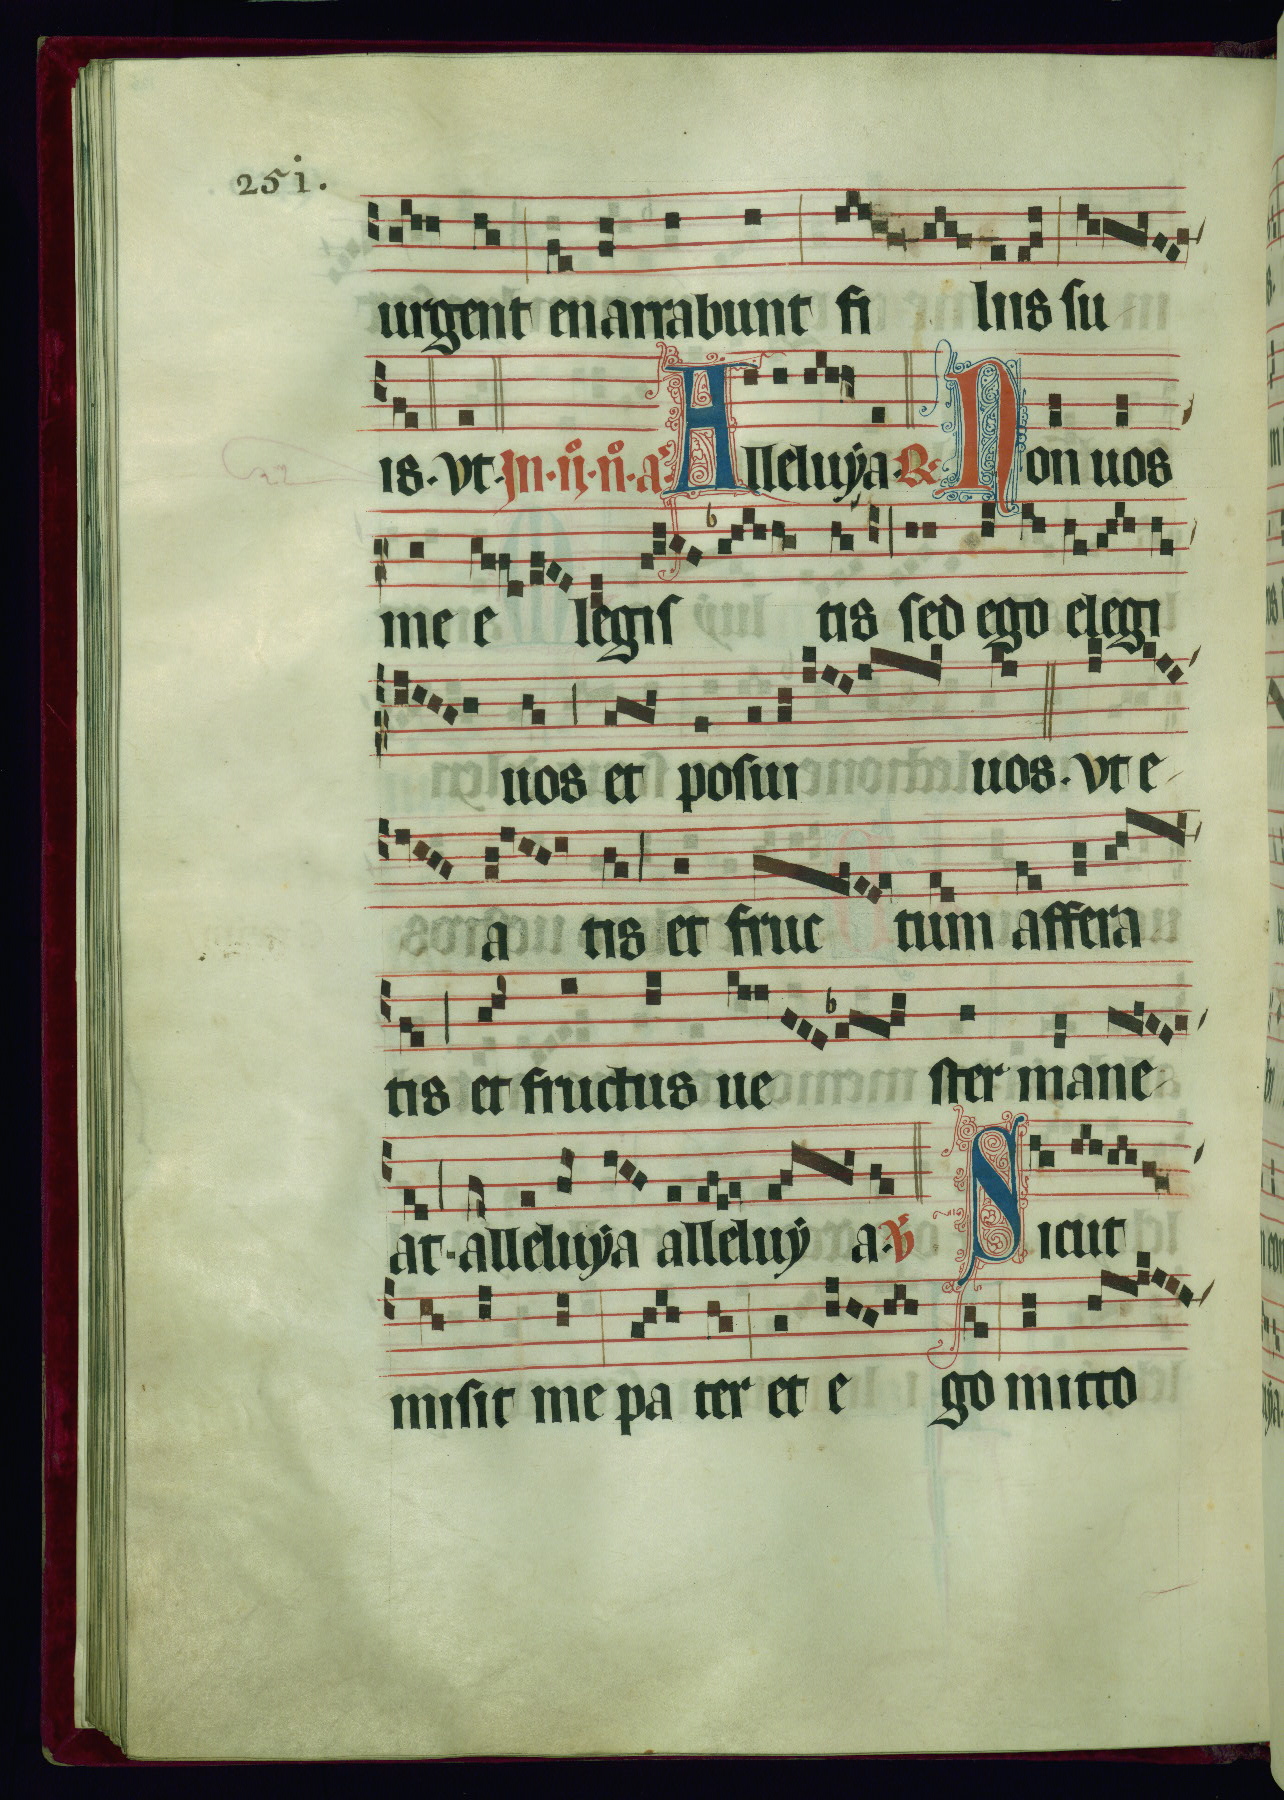 251.
urgent enarrabunt fi liis su
is. vt. In. ij. n. a. Alleluya. R. Non uos
me e legis tis sed ego elegi
uos et posui uos. vt e
a tis et fruc tum affera
tis et fructus ue ster mane
at. alleluya alleluy a. V. Sicut
misit me pa ter et e go mitto